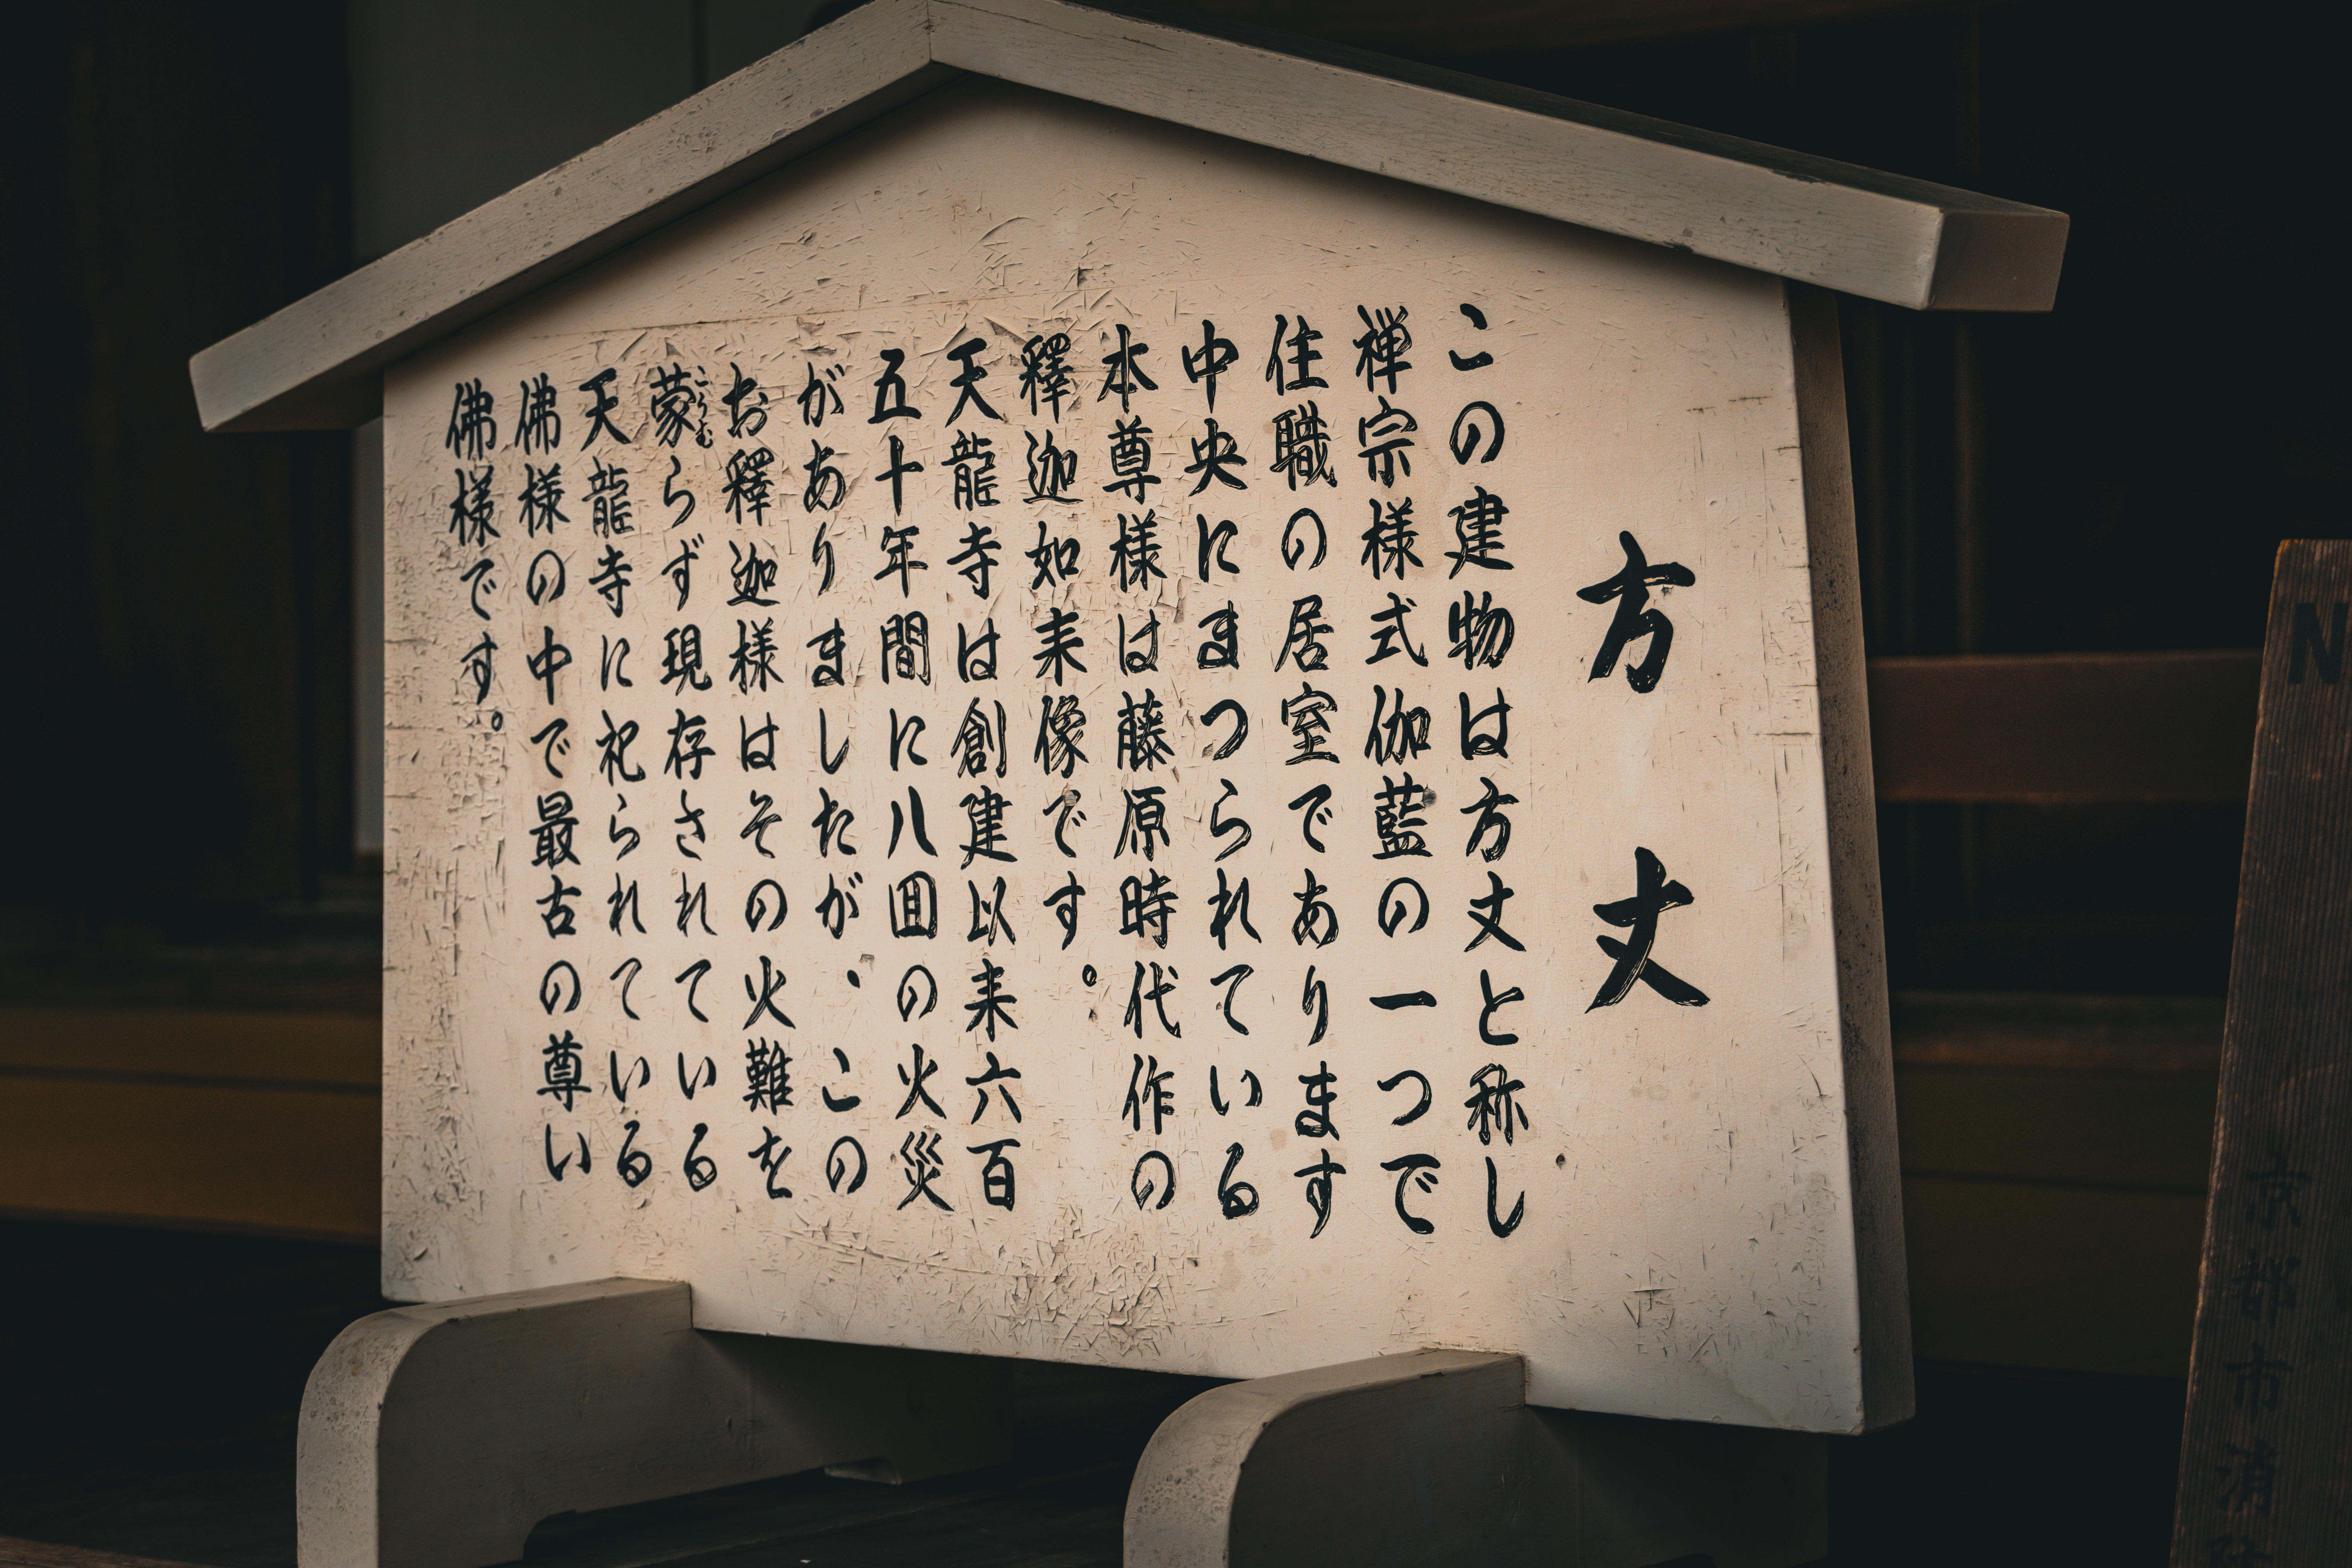 方丈
この建物は方丈と称し
禅宗様式伽藍の一つで
住職の居室であります
中央にまつられている
本尊様は藤原時代作の
釋迦如来像です。
天龍寺は創建以来六百
五十年間に八回の火災
がありましたが、この
お釋迦様はその火難を
蒙らず現存されている
こうむ
天龍寺に祀られている
佛様の中で最古の尊い
佛様です。
N
京都市消